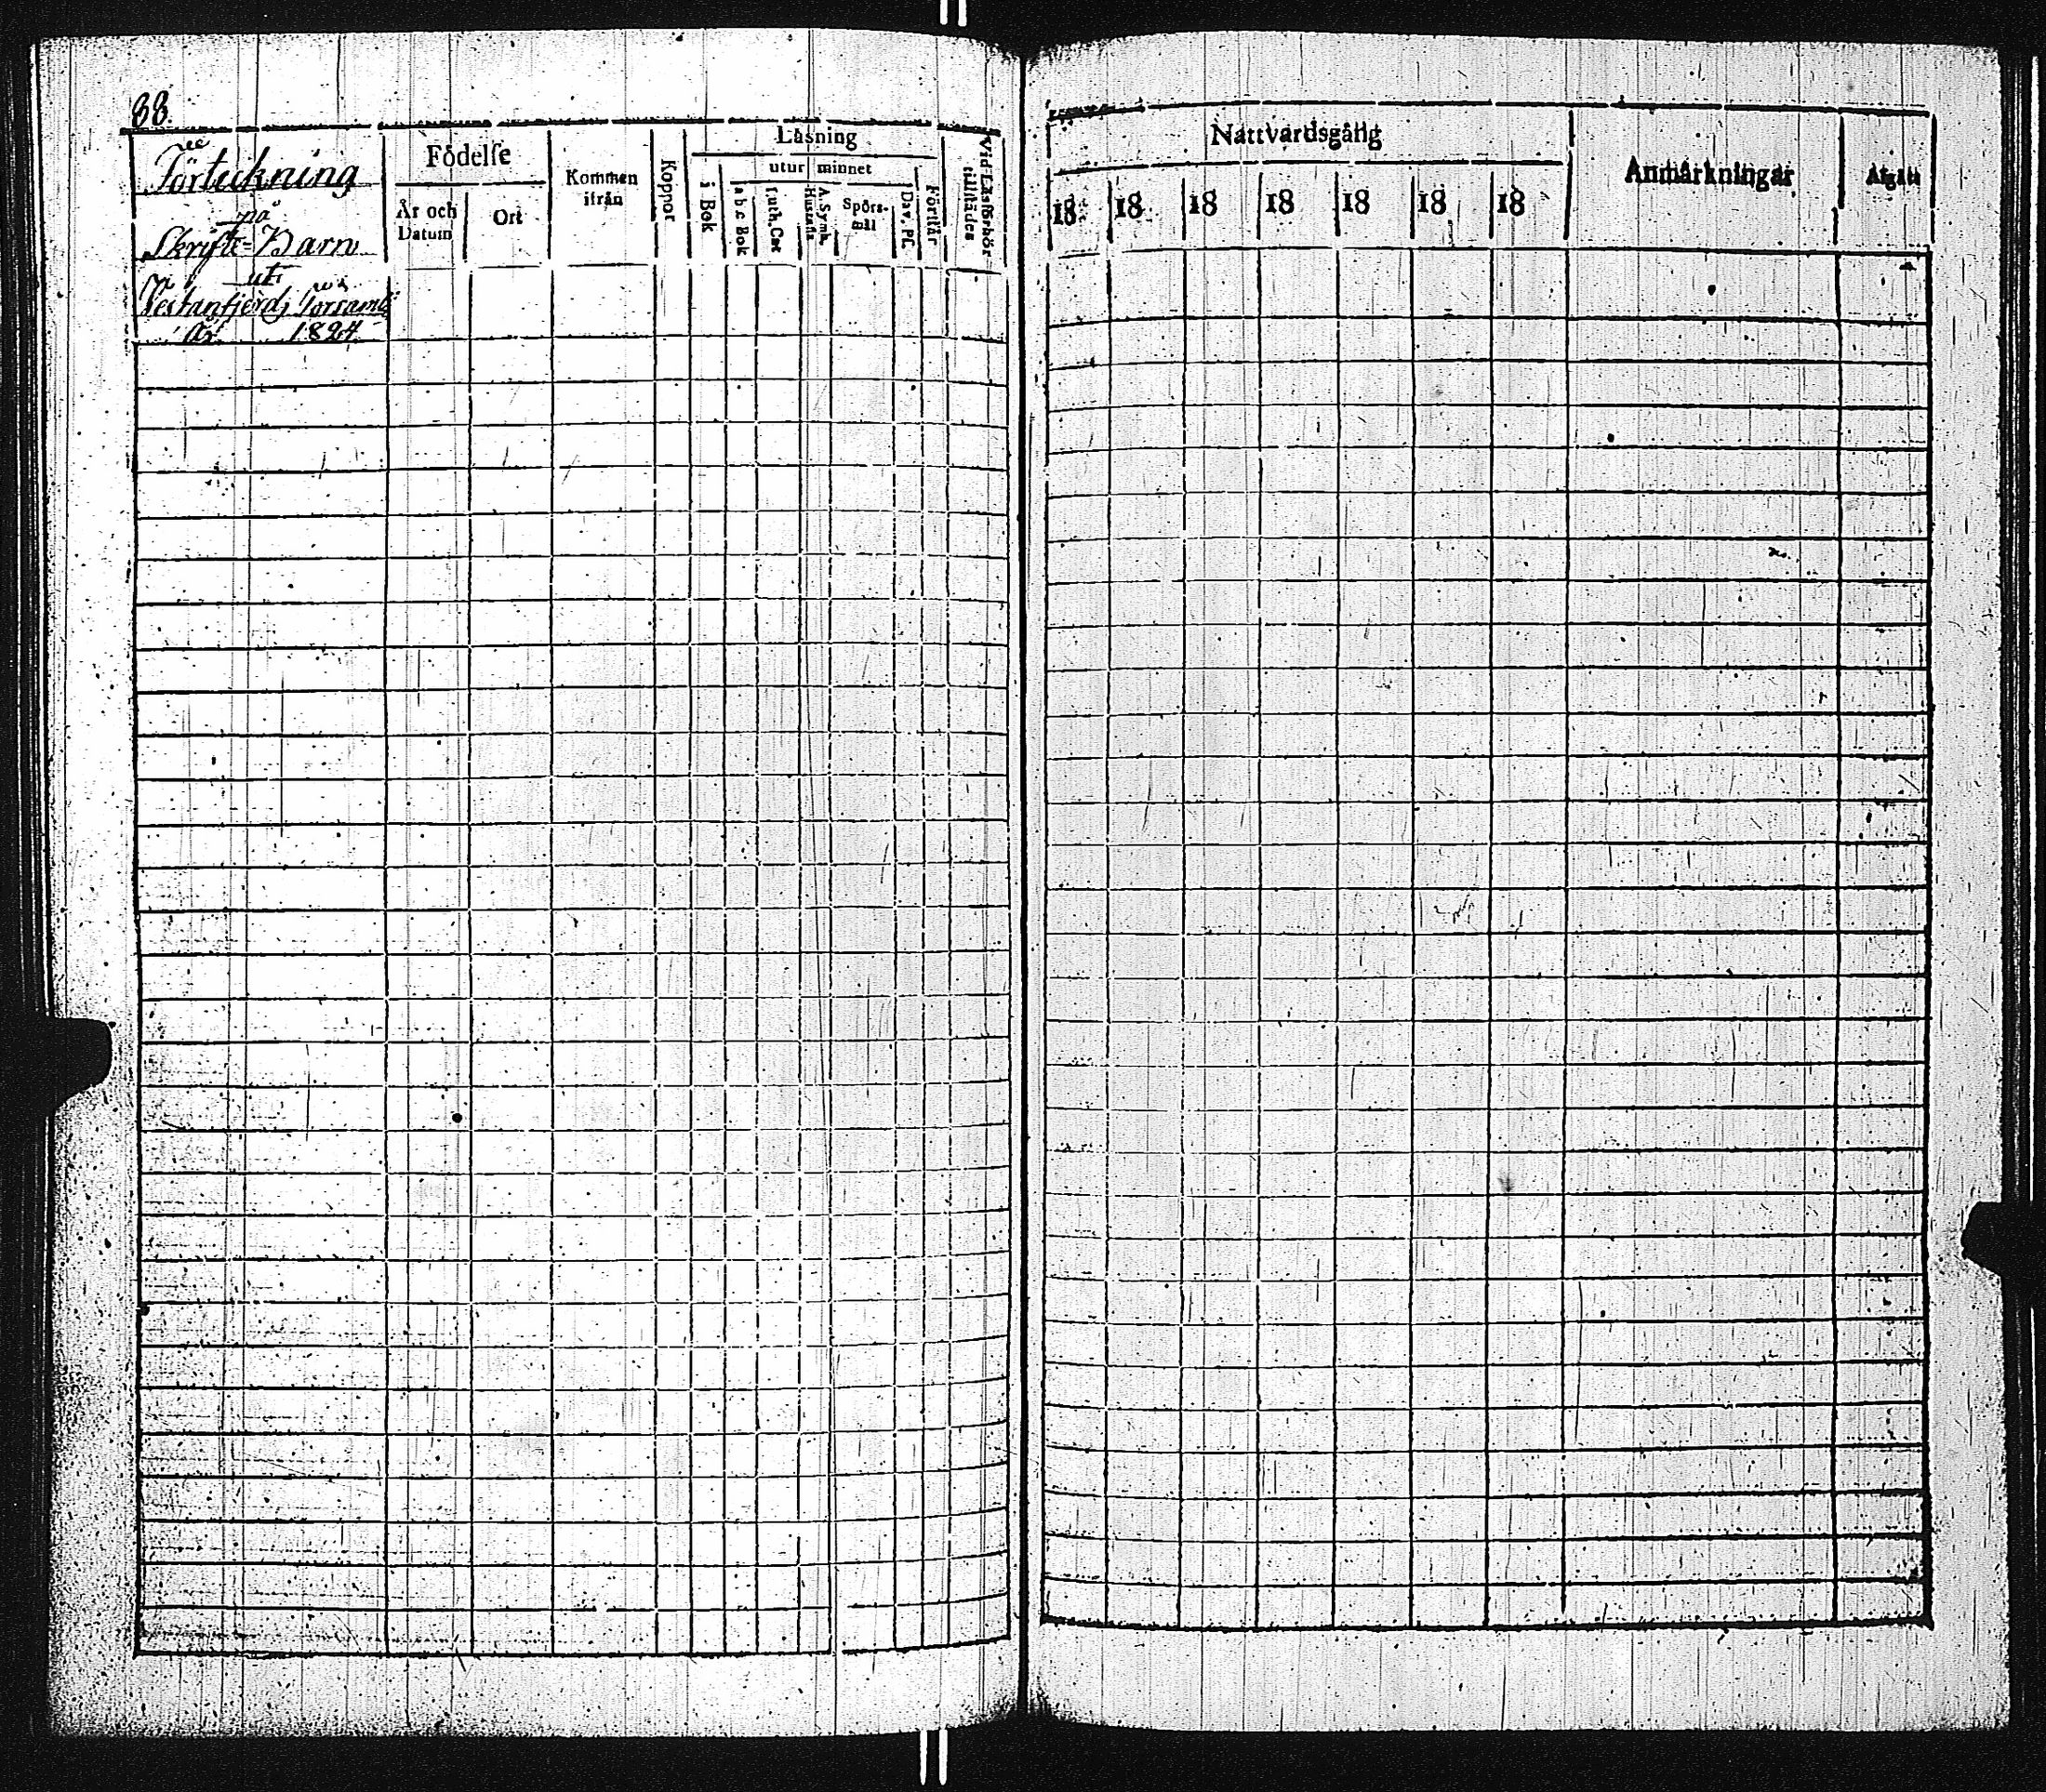 88.
Förteckning
på
Skrifte-Barn
uti
Vestanfjerds Församl:
År 1824
Födelse
År och Datum
Ort
Kommen ifrån
Koppor
Läsning
i Bok
utur minnet
a b c Bok
Luth. Cat
A. Symb. Hustafla
Spörsmål
Dav. Ps.
Förstår
Vid Läsförhör tillstädes
Nattvardsgång
18 18 18 18 18 18 18
Anmärkningar
Afgått